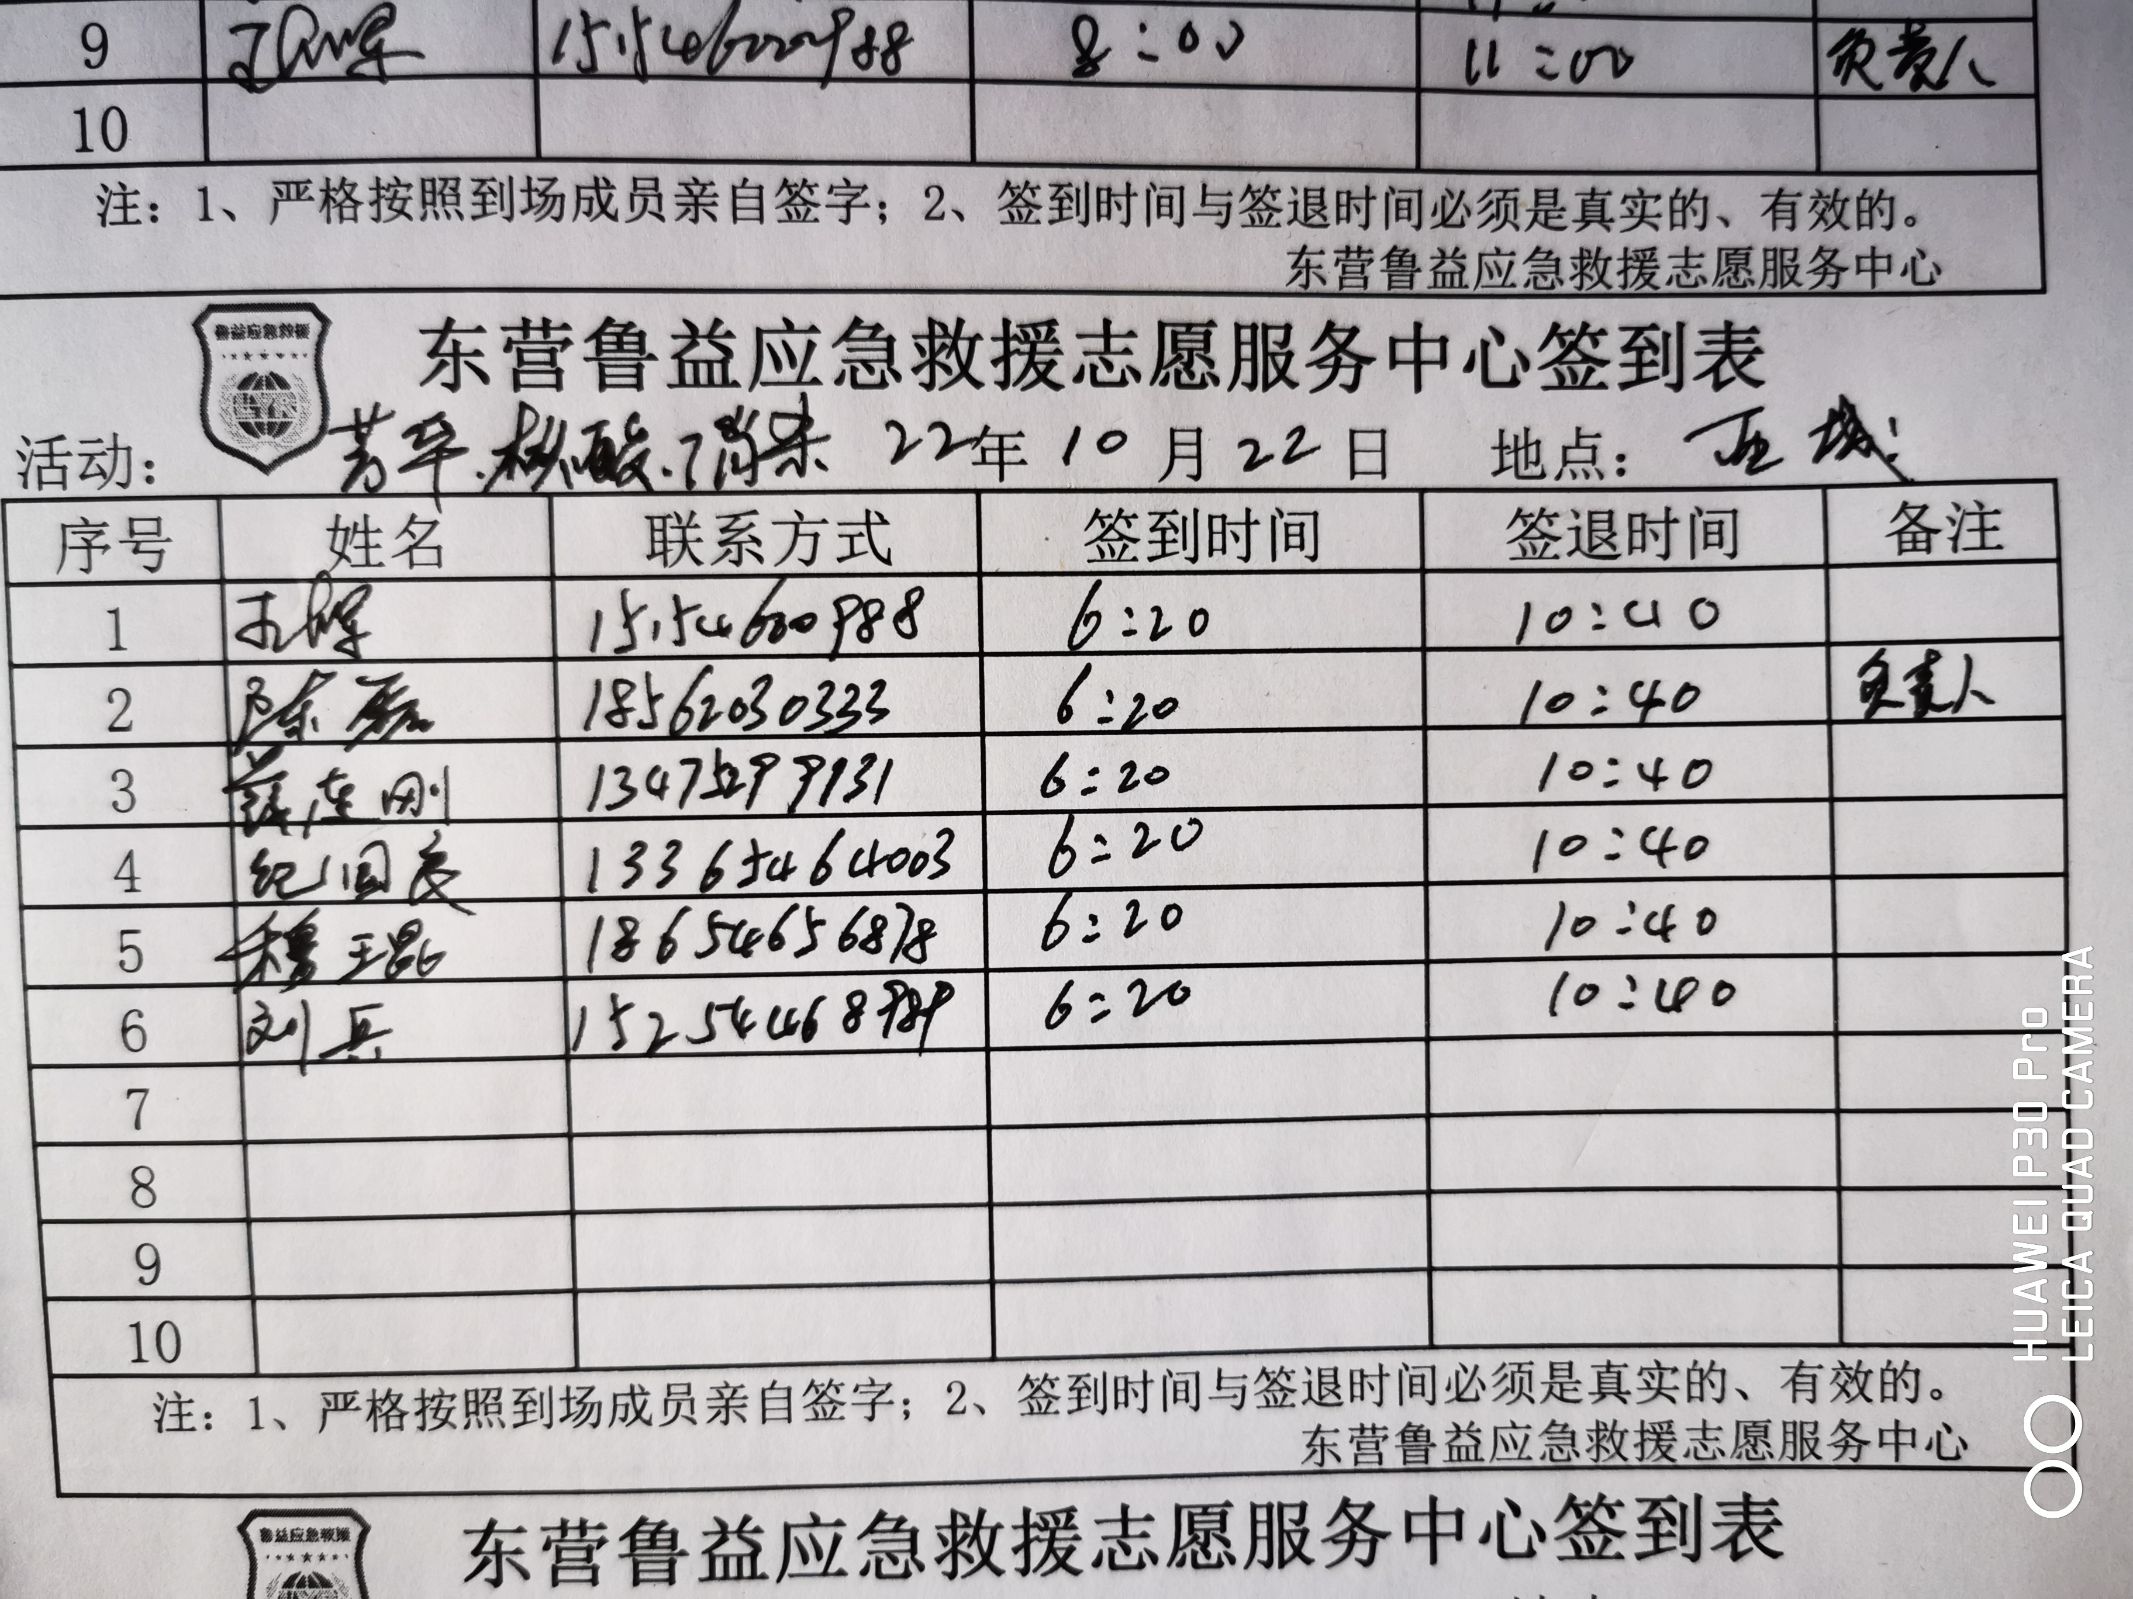 9 8:00 11:00 负责人
10
注：1、严格按照到场成员亲自签字；2、签到时间与签退时间必须是真实的、有效的。
东营鲁益应急救援志愿服务中心
鲁益应急救援
东营鲁益应急救援志愿服务中心签到表
活动： 芳华.核酸.消杀 22年10月22日 地点：
序号 姓名 联系方式 签到时间 签退时间 备注
1 15154600988 6:20 10:40
2 陈磊 18562030333 6:20 10:40 负责人
3 薛连刚 13475299131 6:20 10:40
4 纪国良 13365464003 6:20 10:40
5 穆玉昆 18654656878 6:20 10:40
6 刘兵 15254468989 6:20 10:40
7
8
9
10
注：1、严格按照到场成员亲自签字；2、签到时间与签退时间必须是真实的、有效的。
东营鲁益应急救援志愿服务中心
鲁益应急救援
东营鲁益应急救援志愿服务中心签到表
HUAWEI P30 Pro
LEICA QUAD CAMERA